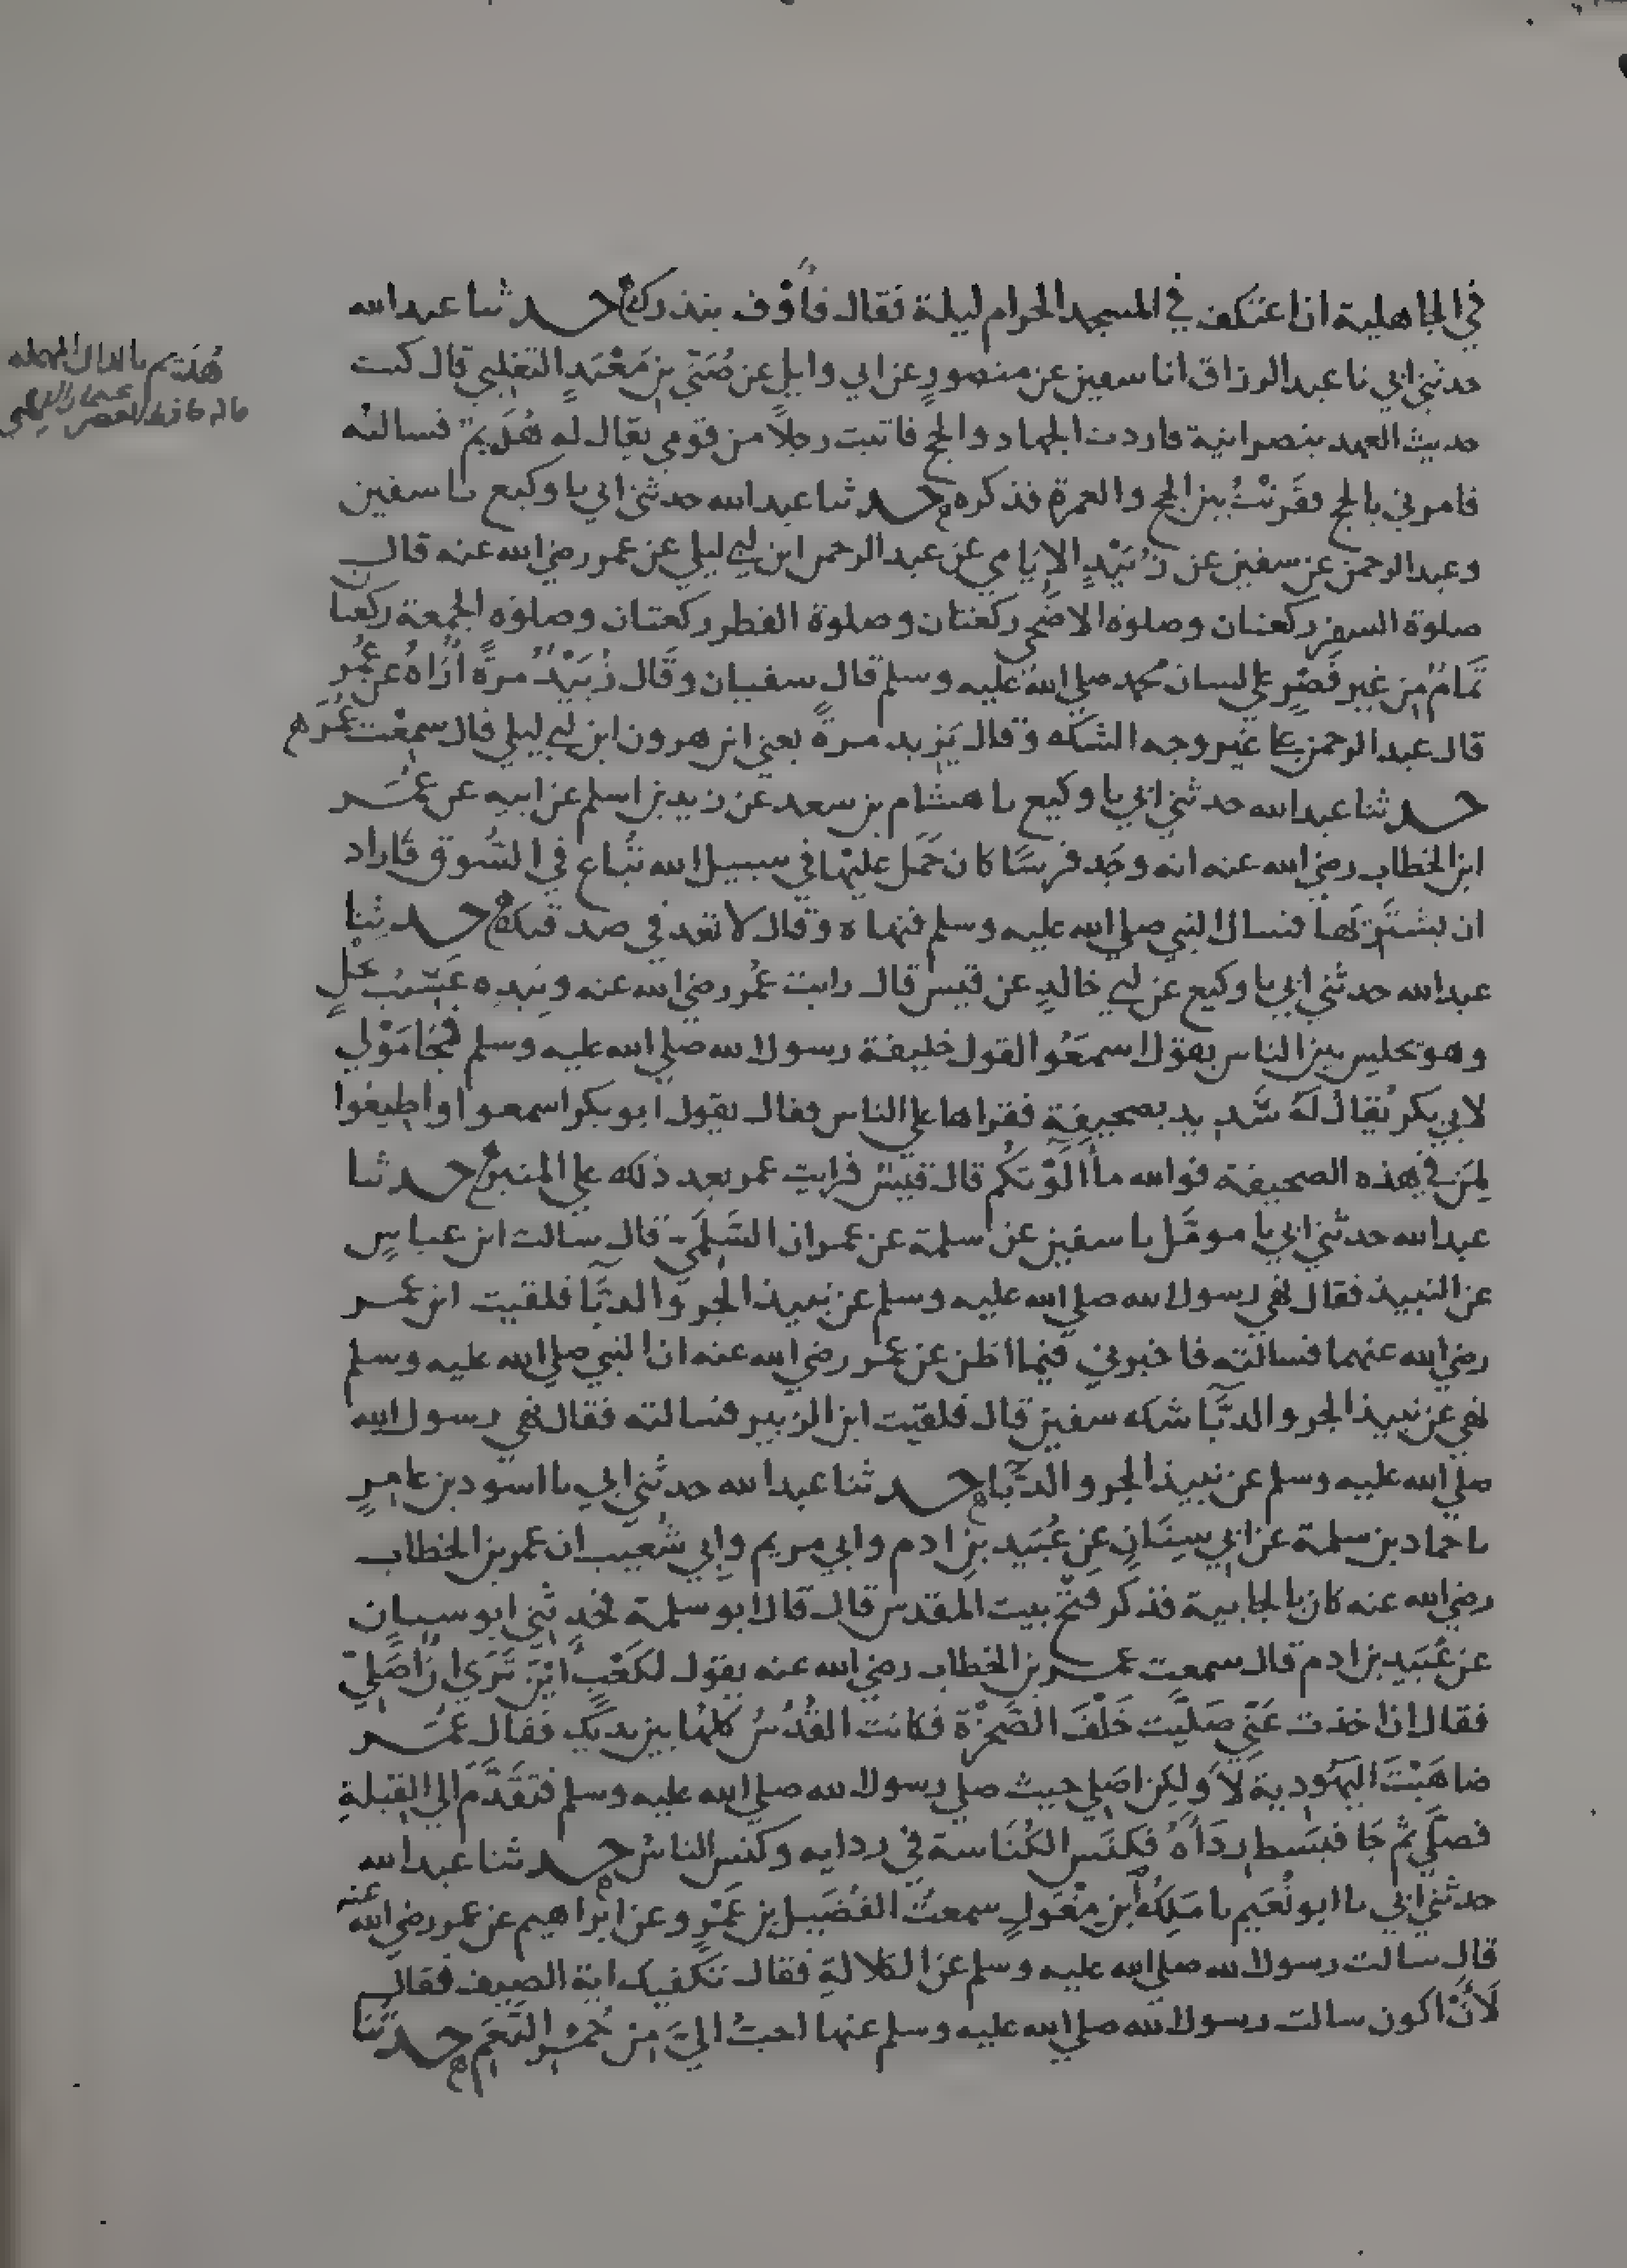 في الجاهلية ان اعتكف في المسجد الحرام ليلة فقال فأوف بنذرك حدثنا عبد الله
حدثني ابي نا عبد الرزاق انا سفين عن منصورٍ عن ابي وايلٍ عن صُبَيّ بن مَعْبَدٍ التغلبي قال كنت
حديث العهد بنصرانية فاردت الجهاد والحج فاتيت رجلاً من قومي يقال له هُدَيم فسالته
فامرني بالحج فقَرنْتُ بين الحج والعمرة فذكره حدثنا عبد الله حدثني ابي نا وكيع نا سفين
وعبد الرحمن عن سفين عن زُبَيْدٍ الإيامي عن عبد الرحمن ابن ابي ليلي عن عمر رضي الله عنه قال
صلوة السفر ركعتان وصلوة الاضحي ركعتان وصلوة الفطر ركعتان وصلوة الجمعة ركعتان
تَمامٌ من غير قَصْرٍ علي لسان محمد صلي الله عليه وسلم قال سفيان وقال زُبَيْدٌ مرةً أُرَاهُ عن عُمر
قال عبد الرحمن علي غير وجه الشك وقال يزيد مرةً يعني ابن هرون ابن ابي ليلي قال سمعت عُمَر
حدثنا عبد الله حدثني ابي نا وكيع نا هشام بن سعد عن زيد بن اسلم عن ابيه عن عُمَر
ابن الخطاب رضي الله عنه انه وجَد فرسًا كان حَمَل عليها في سبيل الله تُبَاع في السُّوق فاراد
ان يشتَرِيَها فسال النبي صلي الله عليه وسلم فنهاه وقال لا تعد في صدقتك حدثنا
عبد الله حدثني ابي نا وكيع عن ابي خالدٍ عن قيس قال رايت عُمر رضي الله عنه وبيده عَسيب نخلٍ
وهو يجلس بين الناس يقول اسمَعُوا لقول خليفة رسول الله صلي الله عليه وسلم فجَا مَوْلي
لابي بكر يُقال لَهُ شَديد بصحيفة فقراها علي الناس فقال يقول ابو بكر اسمعوا واطيعوا
لِمَن في هذه الصحيفة فوالله ما ألَوْتكُم قال قيسٌ فرايت عمر بعد ذلك علي المنبر حدثنا
عبد الله حدثني ابي نا مومَّل نا سفين عن سلمة عن عمران السُّلَمي قال سالت ابن عباسٍ
عن النبيذ فقال نهي رسول الله صلي الله عليه وسلم عن نبيذ الجر والدبّا فلقيت ابن عمر
رضي الله عنهما فسالته فاخبرني فيما اظن عن عمر رضي الله عنه ان النبي صلي الله عليه وسلم
نهي عن نبيذ الجر والدبّا شك سفين قال فلقيت ابن الزبير فسالته فقال نهي رسول الله
صلي الله عليه وسلم عن نبيذ الجر والدبّا حدثنا عبد الله حدثني ابي نا اسود بن عامرٍ
نا حماد بن سلمة عن ابي سِنَانٍ عن عُبَيد بن ادم وابي مريم وابي شُعيب ان عمر بن الخطاب
رضي الله عنه كان بالجابية فذكر فتح بيت المقدس قال قال ابو سلمة فحدثني ابو سنان
عن عُبَيد بن ادم قال سمعت عمر بن الخطاب رضي الله عنه يقول لكَعْبٍ أَيْنَ تَرَي ان أُصَلِّيَ
فقال ان اخذت عَنّي صَلّيت خَلْفَ الصَّخْرَة فكانت القُدْسُ كلها بين يديك فقال عُمَر
ضاهَيْتَ اليَهُودية لَا ولكن اصَلي حيث صلي رسول الله صلي الله عليه وسلم فتَقَدَّم الي القبلةِ
فصلّي ثم جَا فبَسط رِدَاهُ فكنَس الكُنَاسة في ردايه وكنس الناسُ حدثنا عبد الله
حدثني ابي نا ابو نُعَيم نا مَلِكُ ابن مِغْوَلٍ سمعتُ الفُضَيل بن عَمْرٍو عن ابراهيم عن عمر رضي الله عنه
قال سالت رسول الله صلي الله عليه وسلم عن الكلالةِ فقال تكفيك اية الصيف فقال
لَأَنْ اكون سالت رسول الله صلي الله عليه وسلم عنها احبُّ اليَّ مِن حُمْرِ النَّعَم حدثنا
هُدَيم بالدال المهملة